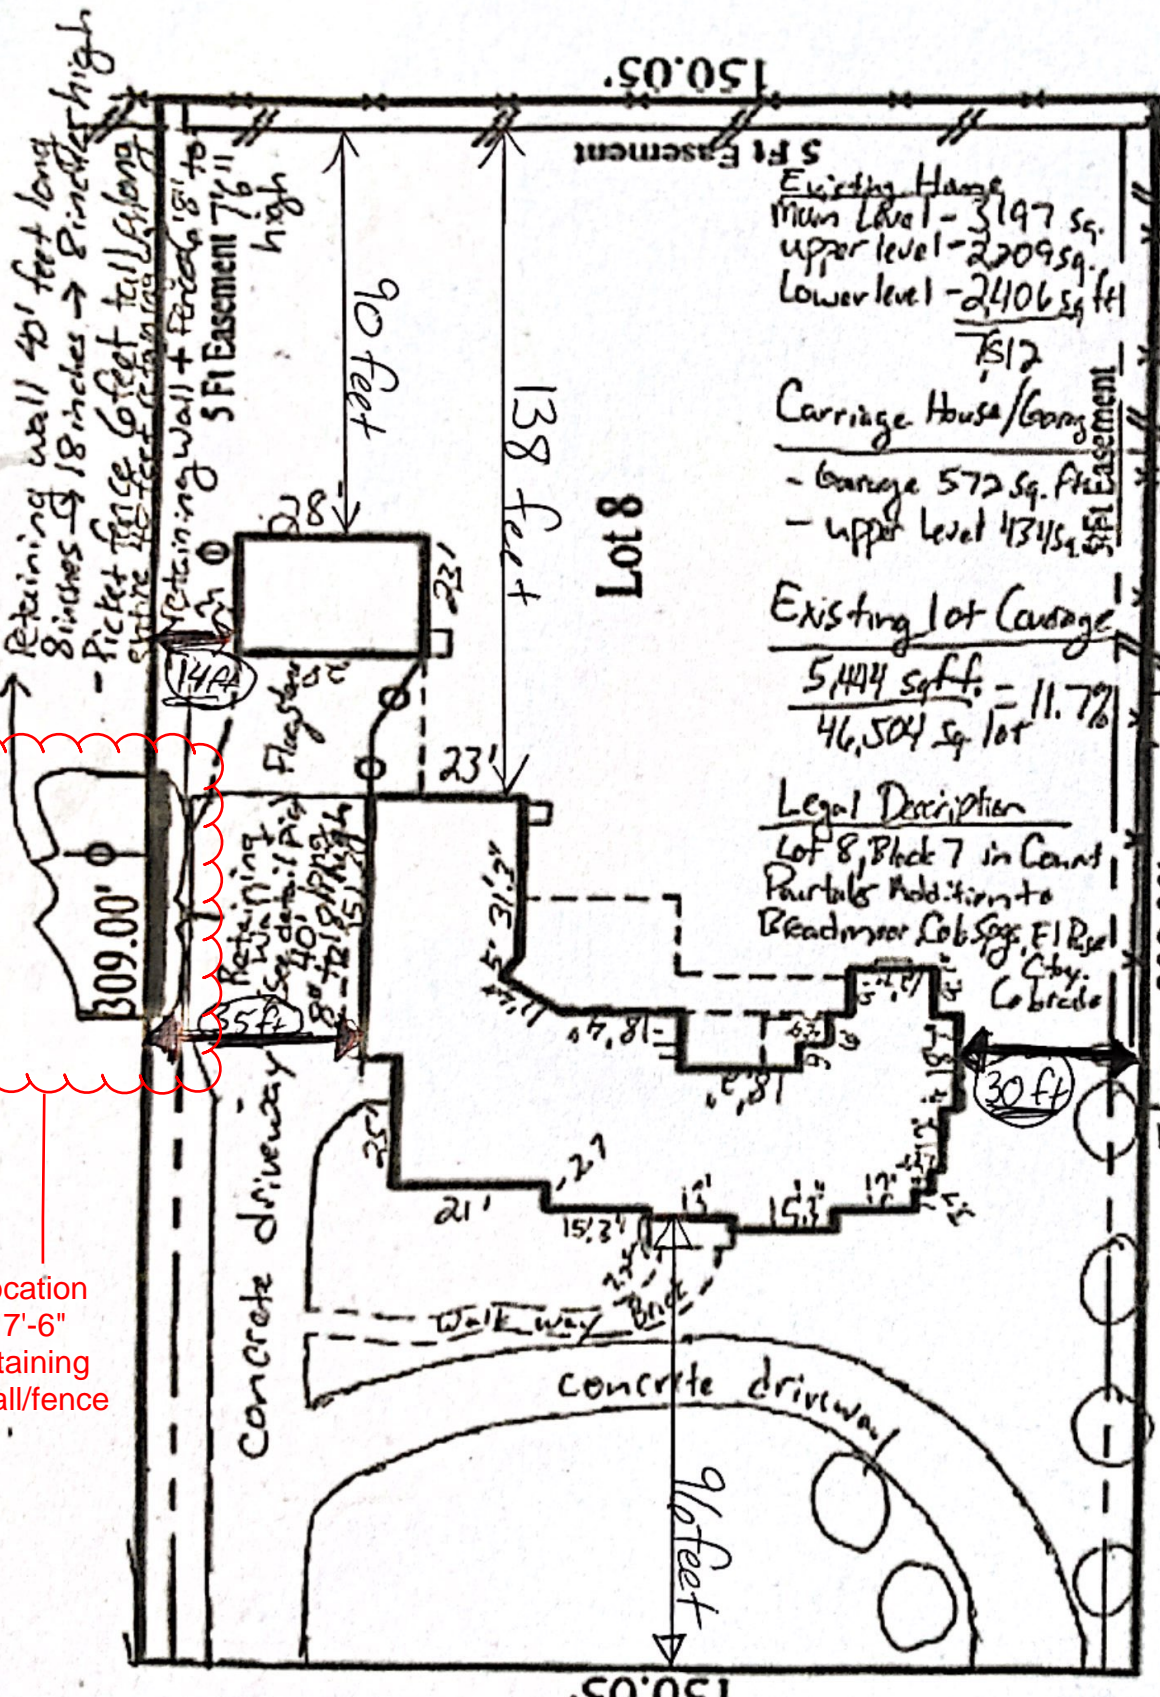 150.05'
5 Ft Easement
Retaining wall 40' feet long
8 inches → 18 inches → 8 inches high
- Picket fence 6 feet tall along
entire 40 feet retaining wall
Retaining wall + fence, 8" to
7'6" high
5 Ft Easement
90 feet
138 feet
Lot 8
Existing Home
Main Level - 3197 sq.
upper level - 2209 sq.
Lower level - 2,406 sq ft
7812
Carriage House/Garag
- Garage 572 sq. ft
- upper Level 434 sq.
5 Ft Easement
Existing lot Coverage
5,444 sq ft. = 11.7%
46,504 sq lot
Legal Description
Lot 8, Block 7 in Count
Pourtales Addition to
Broadmoor, Colo Spgs, El Paso
Cty.
Colorado
28'
23'
14 ft
23'
309.00'
Retaining
Wall
see detail pic
40' long
8" to 18" high
55 ft
51'
31'2"
5'
18'4"
18'2"
30 ft
25'
21'
2'
15'3"
13'
15'3"
Walk way
Brick
concrete driveway
concrete driveway
96 feet
ocation
7'-6"
taining
all/fence
150.05'